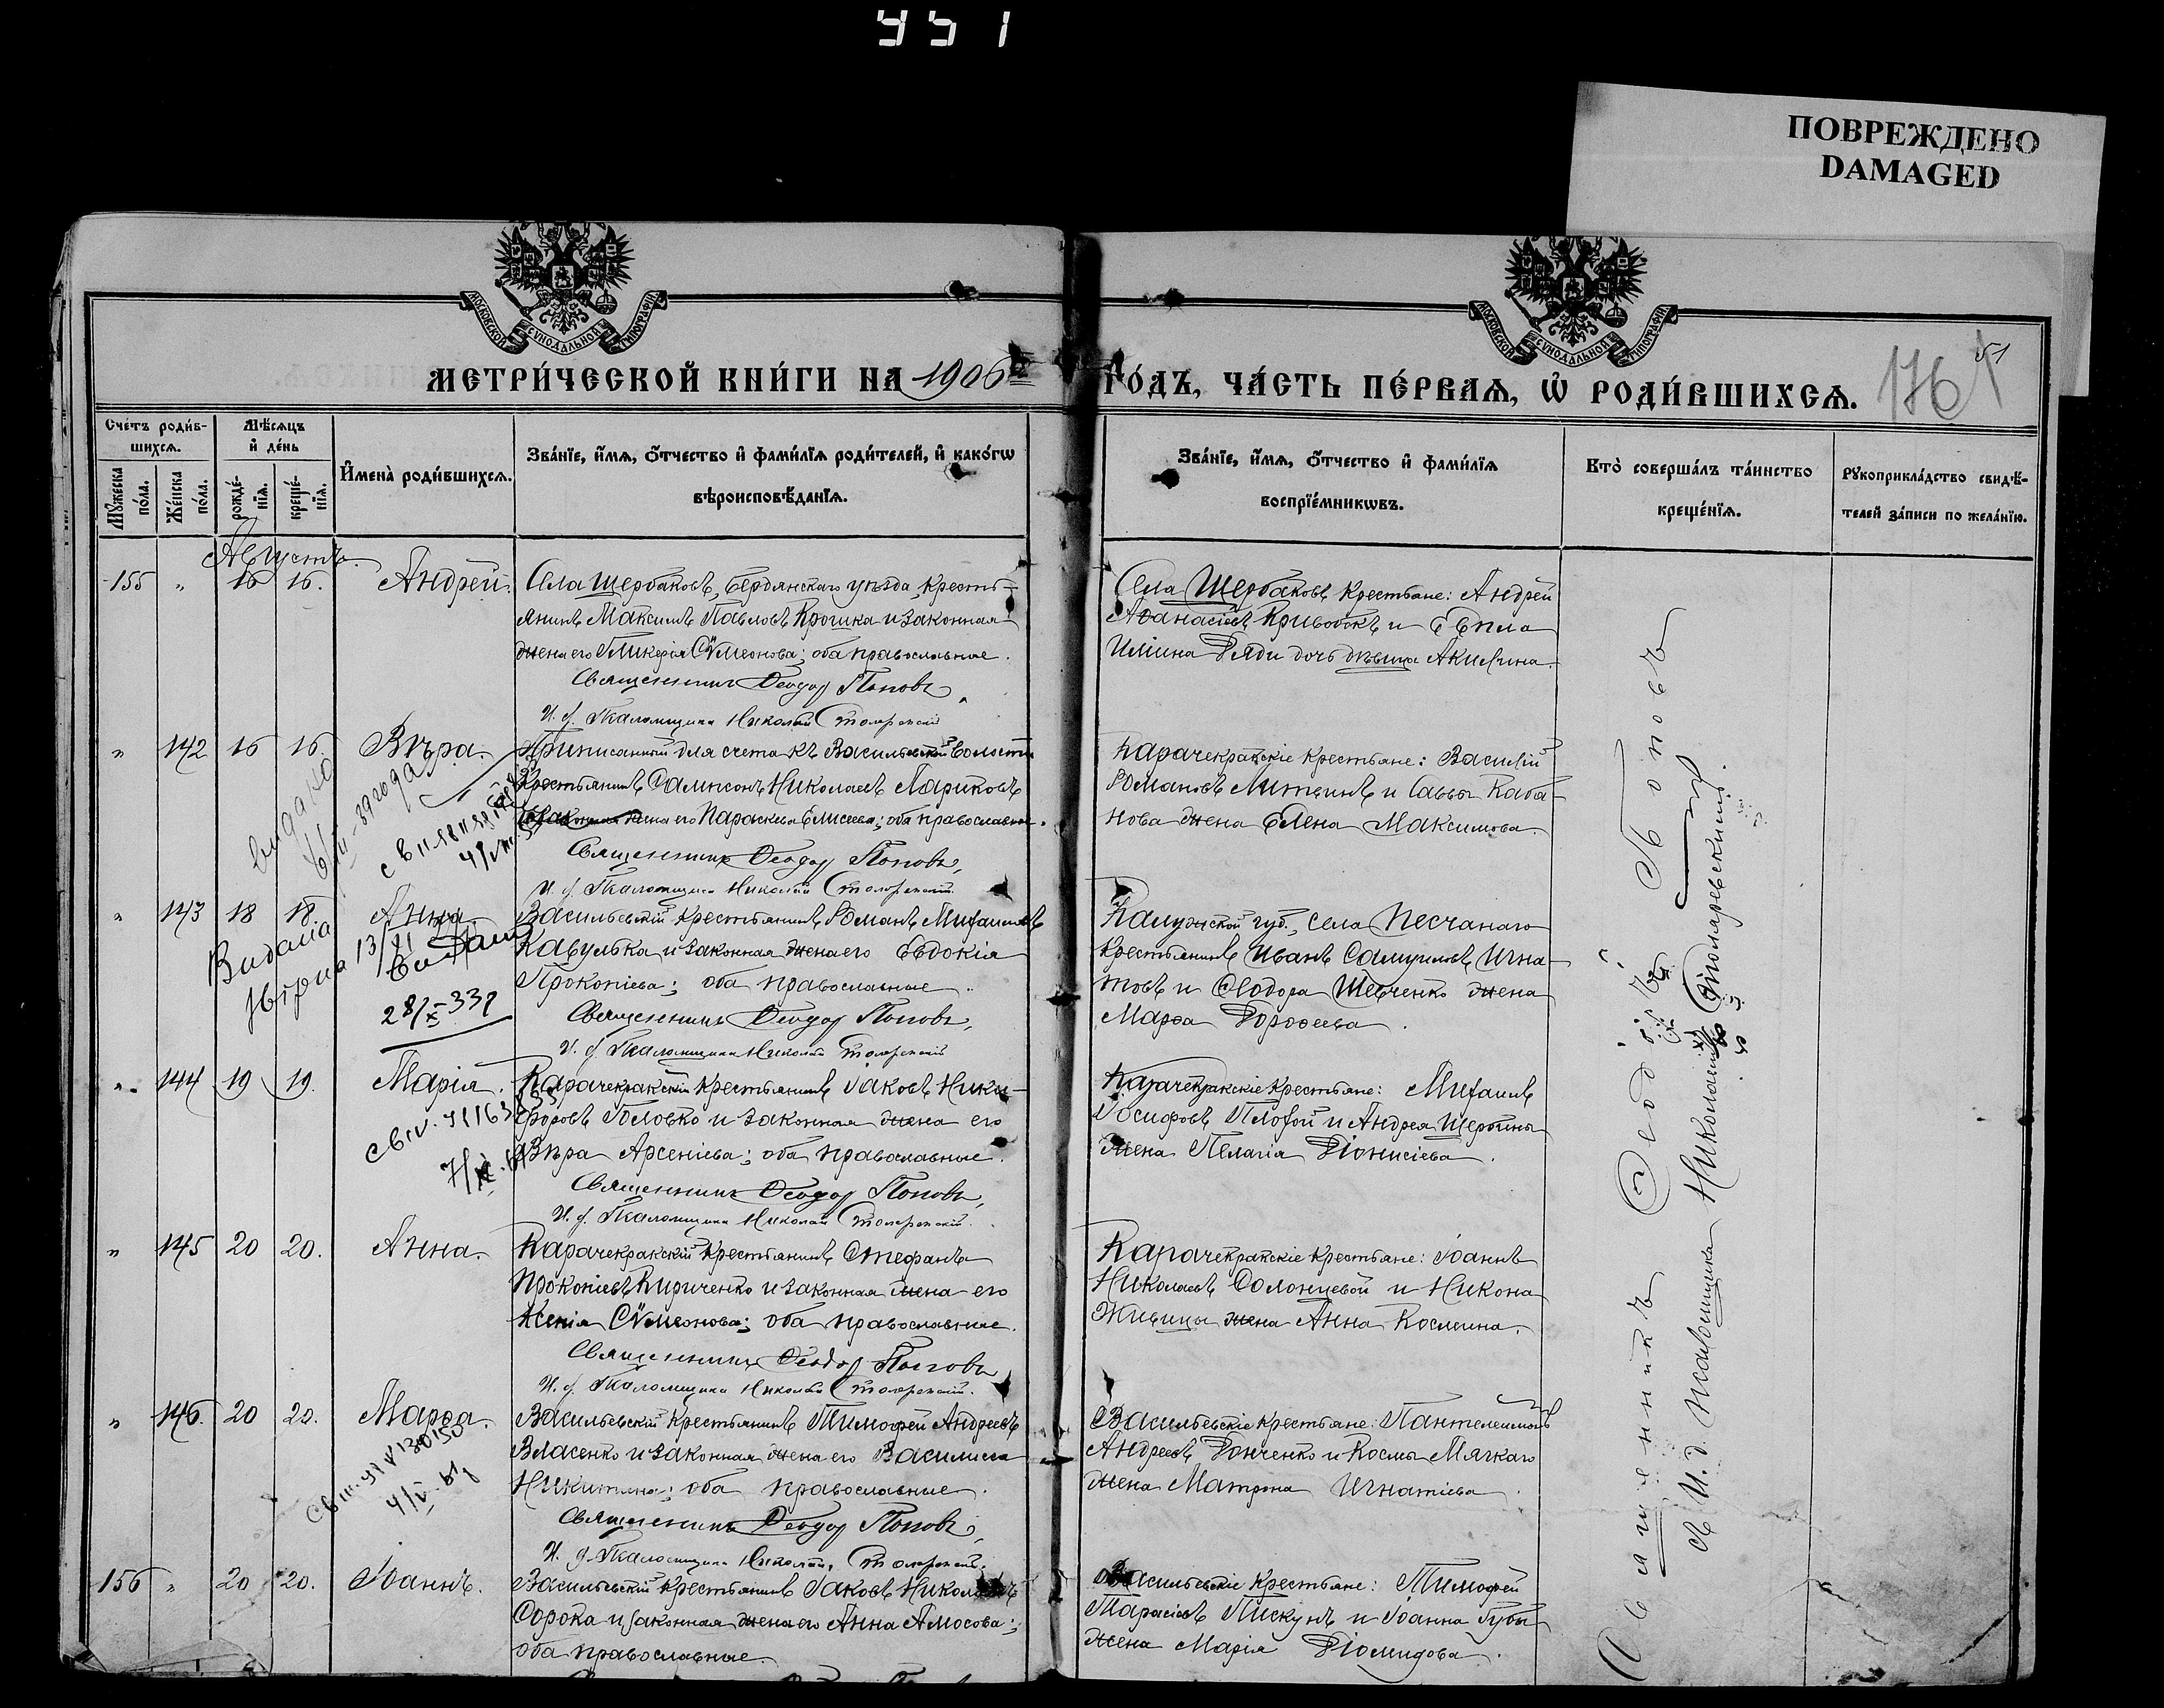 951
ПОВРЕЖДЕНО
DAMAGED
МОСКОВСКОЙ СѴНОДАЛЬНОЙ ТИПОГРАФІИ
МОСКОВСКОЙ СѴНОДАЛЬНОЙ ТИПОГРАФІИ
51
176
МЕТРИ́ЧЕСКОЙ КНИ́ГИ НА 1906й
ГО́ДЪ, ЧА́СТЬ ПЕ́РВАѦ, Ѡ҆ РОДИ́ВШИХСѦ.
Сче́тъ роди́в-
шихсѧ.
Мꙋ́жеска по́ла.
Же́нска по́ла.
Мѣ́сѧцъ и҆ де́нь
рожде́-нїѧ.
креще́-нїѧ.
И҆мена̀ роди́вшихсѧ.
Зва́нїе, и҆́мѧ, ѻ҆́тчество и҆ фами́лїѧ роди́телей, и҆ како́гѡ
вѣроисповѣ́данїѧ.
Зва́нїе, и҆́мѧ, ѻ҆́тчество и҆ фами́лїѧ
воспрїе́мникѡвъ.
Кто̀ соверша́лъ та́инство
креще́нїѧ.
Рꙋкоприкла́дство свидѣ́-
телей за́писи по жела́нїю.
Августъ
155 " 16 16. Андрей.
Села Щербаковъ, Бердянскаго уѣзда, кресть-
янинъ Максимъ Павловъ Крошка и законная
жена его Гликерія Сѵмеонова; оба православные.
Священникъ Ѳеодоръ Поповъ
И. д. Псаломщика Николай Столяревскій
Села Щербаковъ крестьяне: Андрей
Аѳанасіевъ Кривобокъ и
Иліина Дяди дочь дѣвица Акилина.
" 142 16 16. Вѣра.
Приписанный для счета къ Васильевской волости
Крестьянинъ Сампсонъ Николаевъ Лариковъ
и законная жена его Параскева Елисеева; оба православные.
Священникъ Ѳеодоръ Поповъ,
И. д. Псаломщика Николай Столяревскій
Карачекракскіе крестьяне: Василій
Романовъ Литвинъ и Саввы Каба-
нова жена Елена Максимова.
" 143 18 18. Анна.
Васильевскій крестьянинъ Романъ Михаиловъ
Кавулька и законная жена его Евдокія
Прокопіева; оба православные.
Священникъ Ѳеодоръ Поповъ,
И. д. Псаломщика Николай Столяревскій
28/X 33г
Калужской губ., села Песчанаго
крестьянинъ Иванъ Самуиловъ Игна-
товъ и Ѳеодора Шевченко жена
Марѳа Дороѳеева.
" 144 19 19. Марія.
Карачекракскій крестьянинъ Іаковъ Ники-
форовъ Головко и законная жена его
Вѣра Арсеніева; оба православные.
Священникъ Ѳеодоръ Поповъ,
И. д. Псаломщика Николай Столяревскій.
Карачекракскіе крестьяне: Михаилъ
Іосифовъ Плохой и Андрея Щербины
жена Пелагія Діонисіева.
" 145 20 20. Анна.
Карачекракскій крестьянинъ Стефанъ
Прокопіевъ Кириченко и законная жена его
Ксенія Сѵмеонова; оба православные.
Священникъ Ѳеодоръ Поповъ
И. д. Псаломщика Николай Столяревскій.
Карачекракскіе крестьяне: Іоаннъ
Николаевъ Солонцевой и Никона
Живицы жена Анна Космина.
" 146. 20 20. Марѳа.
Васильевскій крестьянинъ Тимоѳей Андреевъ
Власенко и законная жена его Василисса
Никитина; оба православные.
Священникъ Ѳеодоръ Поповъ,
И. д. Псаломщика Николай Столяревскій.
Васильевскіе крестьяне: Пантелеимонъ
Андреевъ Донченко и Космы Мягкаго
жена Матрона Игнатіева.
156 " 20 20. Іоаннъ.
Васильевскій крестьянинъ Іаковъ Николаевъ
Сорока и законная жена его Анна Амосова;
оба православные.
Васильевскіе крестьяне: Тимоѳей
Тарасіевъ Пискунъ и Іоанна Губы
жена Марія Діомидова.
Священникъ Ѳеодоръ Поповъ
И. д. Псаломщика Николай Столяревскій.